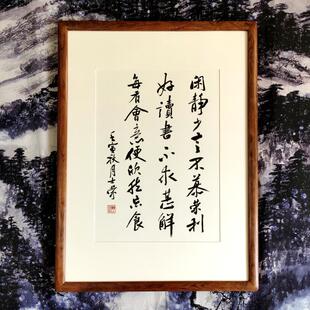 闲静少言不慕荣利
好讀書不求甚解
每有會意便欣然忘食
壬寅秋月士学